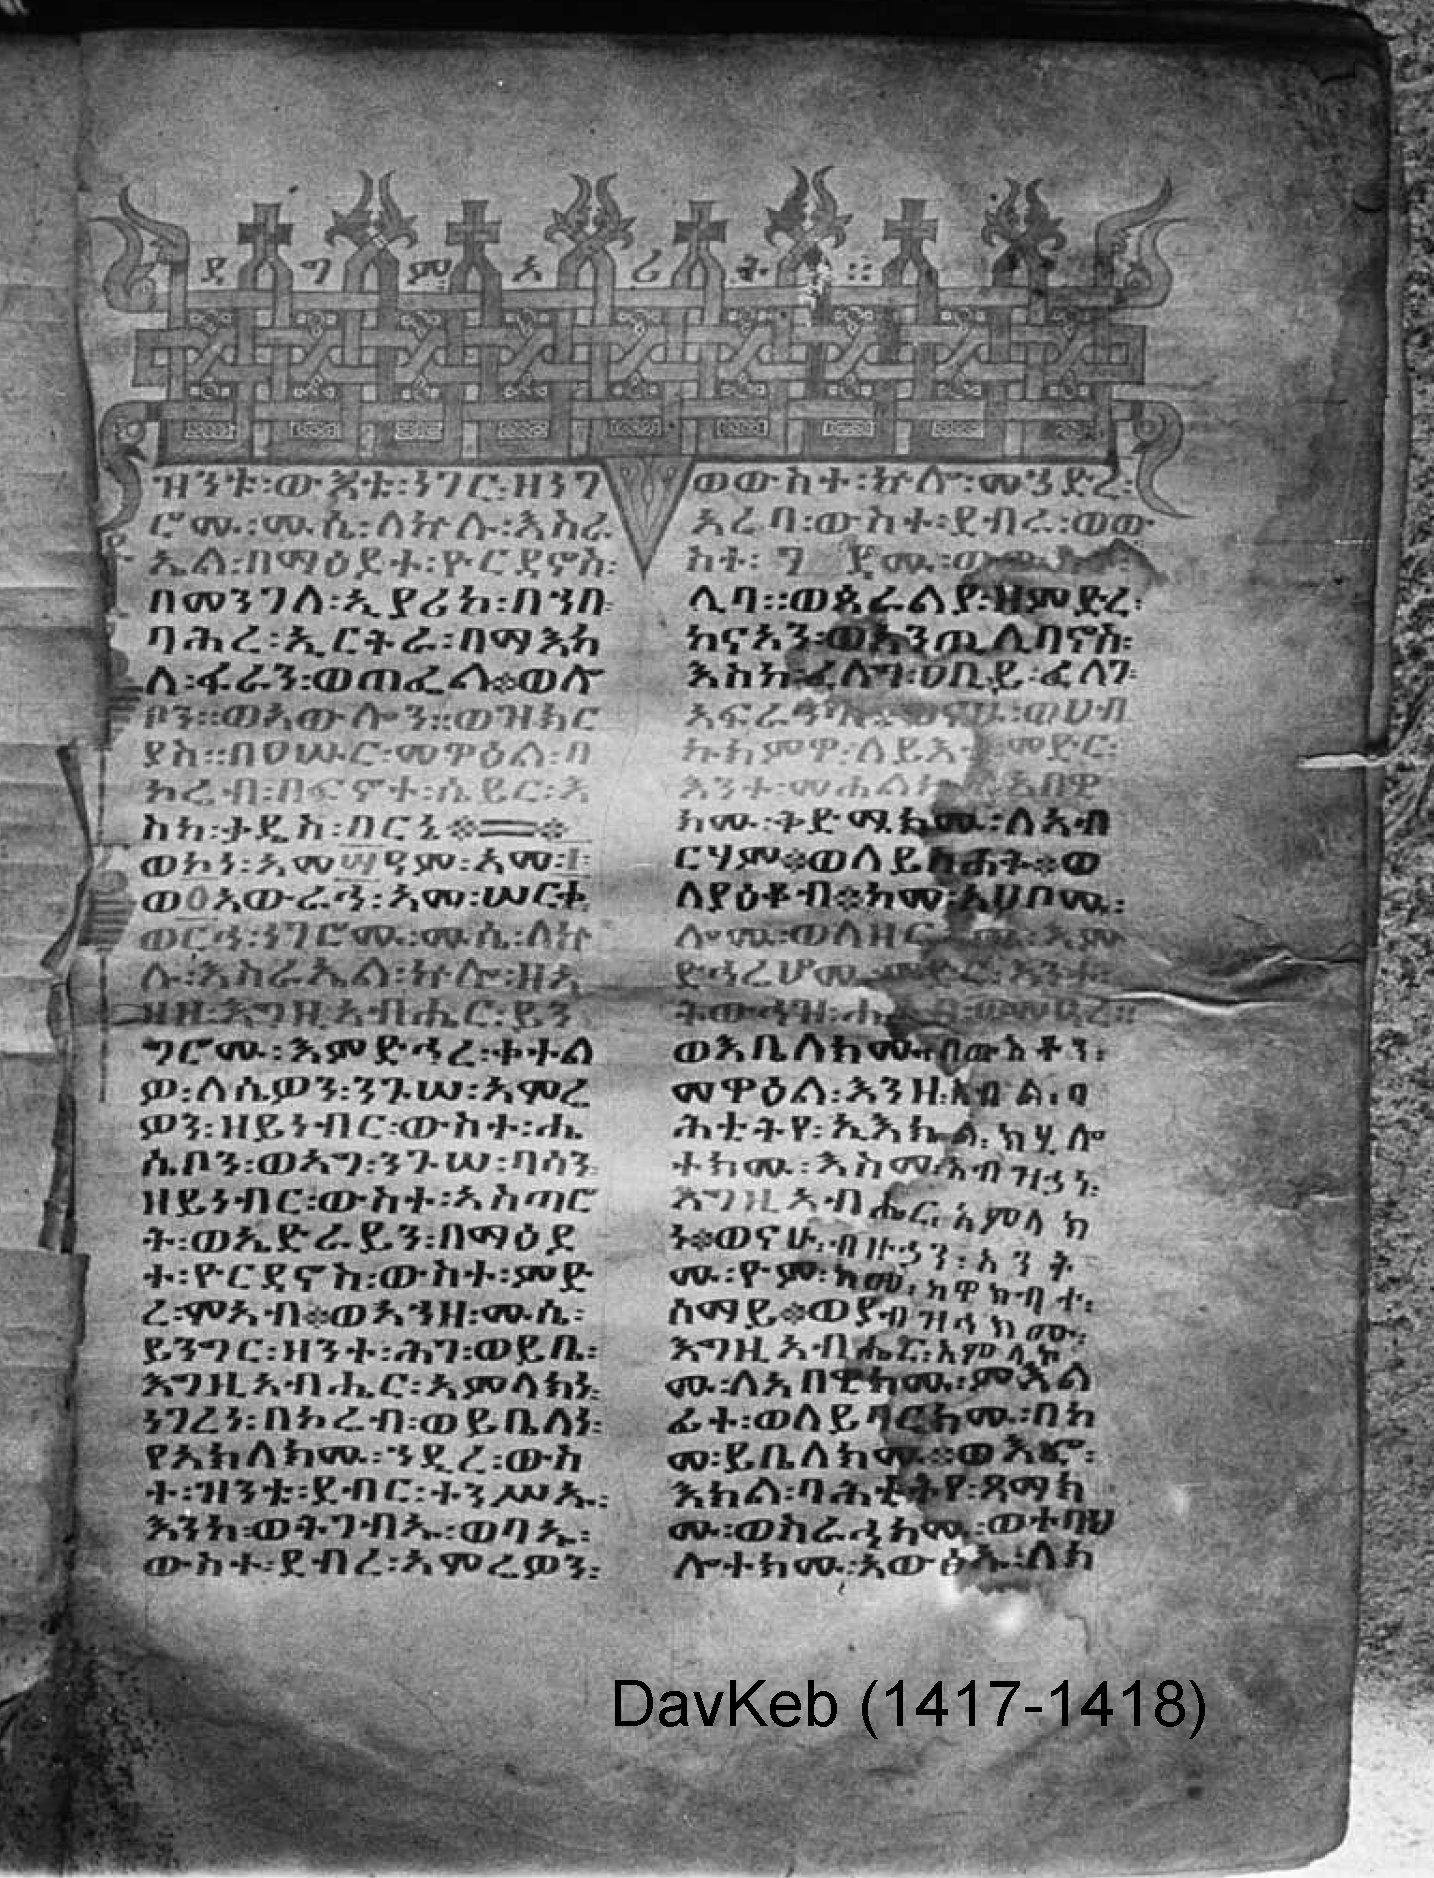 ዝንቱ፡ውእቱ፡ነገር፡ዘነገ
ሮሙ፡ሙሴ፡ለኵሉ፡እስራ
ኤል፡በማዕደተ፡ዮርዳኖስ፡
በመንገለ፡ኢያሪከ፡በኀበ፡
ባሕረ፡ኢርትራ፡በማእከ
ለ፡ፋራን፡ወጠፈል፨ወሎ
ቦን፡፡ወአውሎን፡፡ወዝክር
ያስ፡፡በዐሡር፡መዋዕል፡በ
ኮሬብ፡በፍኖተ፡ሴይር፡እ
ስከ፡ቃዴስ፡በርኔ፨
ወኮነ፡አመ
ወ፩አውራኅ፡አመ፡ሠርቀ
ወርኅ፡ነገሮሙ፡ሙሴ፡ለኵ
ሉ፡እስራኤል፡ኵሎ፡ዘአ
ዘዘ፡እግዚአብሔር፡ይን
ግሮሙ፡እምድኅረ፡ቀተል
ዎ፡ለሴዎን፡ንጉሠ፡አምሬ
ዎን፡ዘይነብር፡ውስተ፡ሔ
ሴቦን፡ወአግ፡ንጉሠ፡ባሳን፡
ዘይነብር፡ውስተ፡አስጣሮ
ት፡ወኤድራይን፡በማዕደ
ተ፡ዮርዳኖስ፡ውስተ፡ምድ
ረ፡ምአብ፨ወአኀዘ፡ሙሴ፡
ይንግር፡ዘንተ፡ሕገ፡ወይቤ፡
እግዚአብሔር፡አምላክነ፡
ነገረነ፡በኮሬብ፡ወይቤለነ፡
የአክለክሙ፡ኀዲረ፡ውስ
ተ፡ዝንቱ፡ደብር፡ተንሥኡ፡
እንከ፡ወትገብኡ፡ወባኡ፡
ውስተ፡ደብረ፡አምሬዎን፡
ወውስተ፡ኵሎ፡መኃድረ፡
አረባ፡ውስተ፡ደብረ፡ወው
ስተ፡
ሊባ፡፡ወጰራልያ፡ዘምድረ፡
ከናአን፡ወአንጢሊባኖስ፡
እስከ፡ፈለግ፡ዐቢይ፡ፈለገ፡
ወሀብ
ኩክምዋ፡ለይእ መድር፡
እንተ፡መሐልኩ አበዊ
ክሙ፡ቅድማክሙ፡ለአብ
ርሃም፨ወለይስሐቅ፨ወ
ለያዕቆብ፨ከመ፡አሀቦሙ፡
ሎሙ፡ወለዘር እም
ድኅሬሆሙ፡ምድረ፡እንተ፡
ትውኅዝ፡
ወእቤለክሙ፡በውእቶን፡
መዋዕል፡እንዘ፡እብል፡ባ
ሕቲትየ፡ኢእክል፡ክሂሎ
ተክሙ፡እስመ፡አብዝኃነ፡
እግዚአብሔር፡አምላክ
ነ፨ወናሁ፡ብዙኃን፡አንት
ሙ፡ዮም፡ከመ፡ከዋክብተ፡
ሰማይ፨ወያብዝኅክሙ፡
እግዚአብሔር፡አምላኮ
ሙ፡ለአበዊክሙ፡ምእል
ፊተ፡ወለይባርክሙ፡በከ
መ፡ይቤለክሙ፨ወእፎ፡
እክል፡ባሕቲትየ፡ጻማክ
ሙ፡ወስራኅክሙ፡ወተባህ
ሎተክሙ፡አውፅኡ፡ለክ
DavKeb (1417-1418)